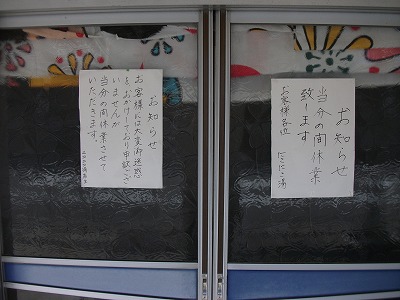 お知らせ
お客様には大変御迷惑
をおかけしており申訳ござ
いませんが
当分の間休業させて
いただきます
お知らせ
当分の間休業
致します
お客様各位